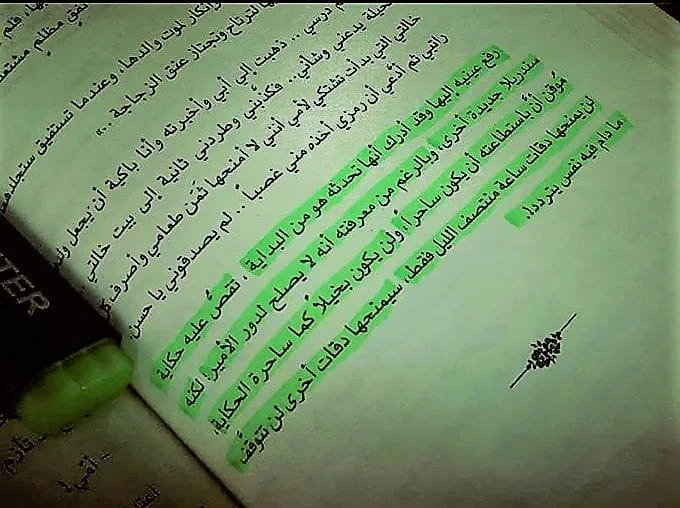 نفق مظلم
وإنكار لموت والدها، وعندما تستفيق ستجد
ها لترتاح وتجتاز عنق الزجاجة ..»
درسي .. ذهبت إلى أبي وأخبرته وأنا باكية أن يجعل
يدعني وشأني .. فكذبني وطردني ثانية إلى بيت خالتي
خالتي التي بدأت تشتكي لأمي أنني لا أمنحها ثمن طعامي وأصرف
راتبي ثم أدّعي أن رمزي أخذه مني غصباً .. لم يصدقوني يا حسن
رفع عينيه إليها وقد أدرك أنها تحدثه هو من البداية ، تقصّ عليه حكاية
سندريلا جديدة، أخرى، وبالرغم من معرفته أنه لا يصلح لدور الأمير، لكنه
مُوقن أنّ باستطاعته أن يكون ساحراً، ولن يكون بخيلاً كما ساحرة الحكاية،
لن يمنحها دقات ساعة منتصف الليل فقط، سيمنحها دقات أخرى لن تتوقّف
ما دام فيه نفس يتردد!.
TER